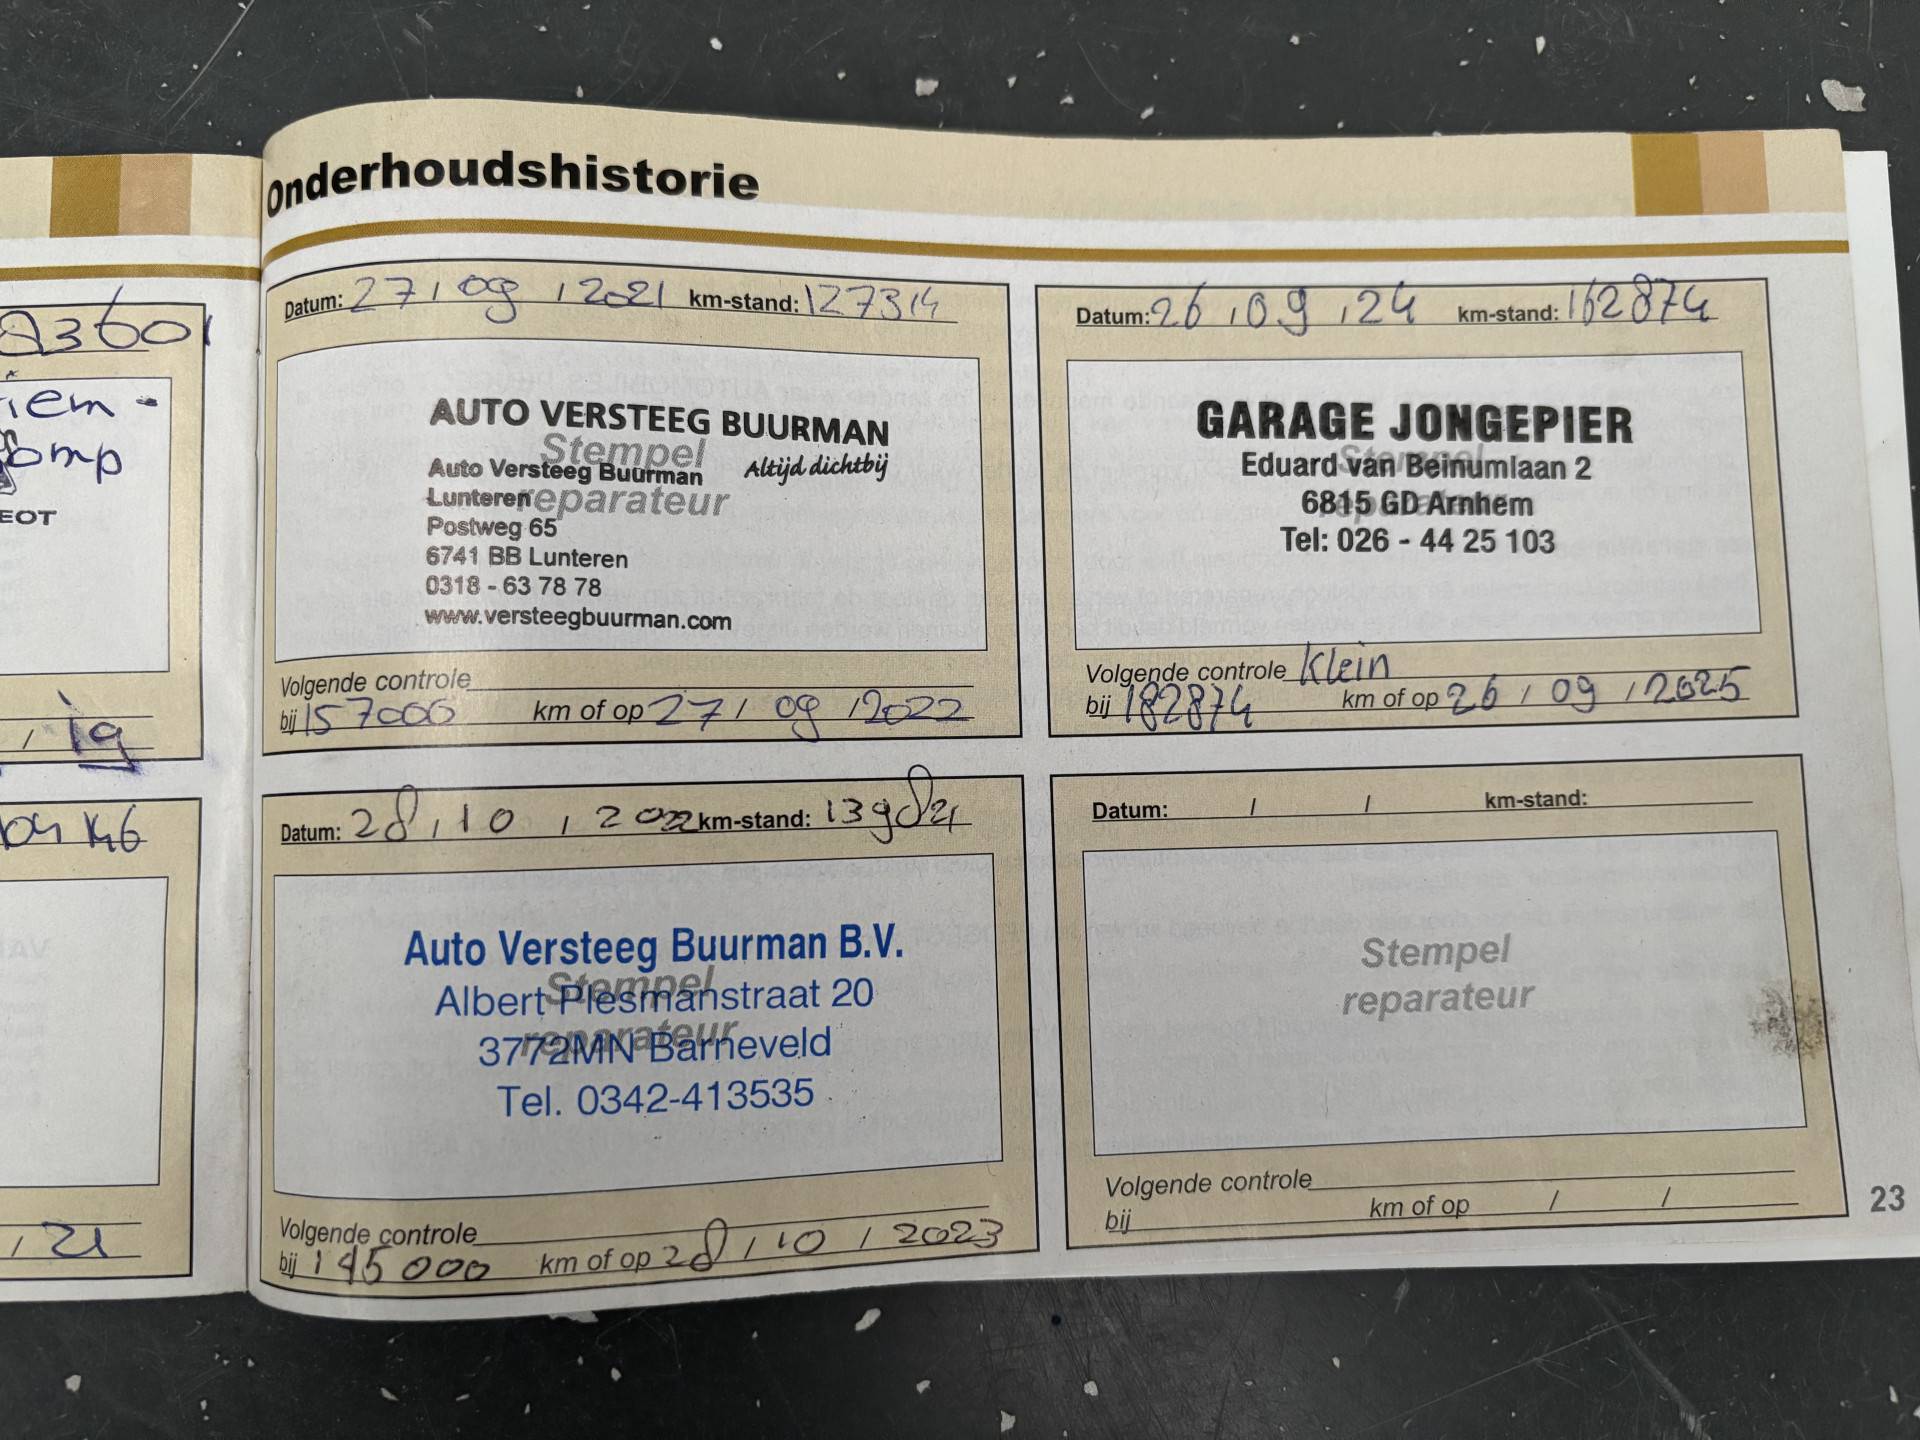 Onderhoudshistorie
Datum: 27 / 09 / 2021 km-stand: 127314
AUTO VERSTEEG BUURMAN
Stempel
Auto Versteeg Buurman Altijd dichtbij
Lunteren reparateur
Postweg 65
6741 BB Lunteren
0318 - 63 78 78
www.versteegbuurman.com
Volgende controle
bij 157000 km of op 27 / 09 / 2022
Datum: 26 / 09 / 24 km-stand: 162874
GARAGE JONGEPIER
Stempel
Eduard van Beinumlaan 2
reparateur
6815 GD Arnhem
Tel: 026 - 44 25 103
Volgende controle Klein
bij 182874 km of op 26 / 09 / 2025
Datum: 28 / 10 / 2022 km-stand: 139821
Auto Versteeg Buurman B.V.
Stempel
Albert Plesmanstraat 20
reparateur
3772MN Barneveld
Tel. 0342-413535
Volgende controle
bij 145000 km of op 28 / 10 / 2023
Datum: / / km-stand:
Stempel
reparateur
Volgende controle
bij km of op / /
23
omp
EOT
/ 19
/ 21